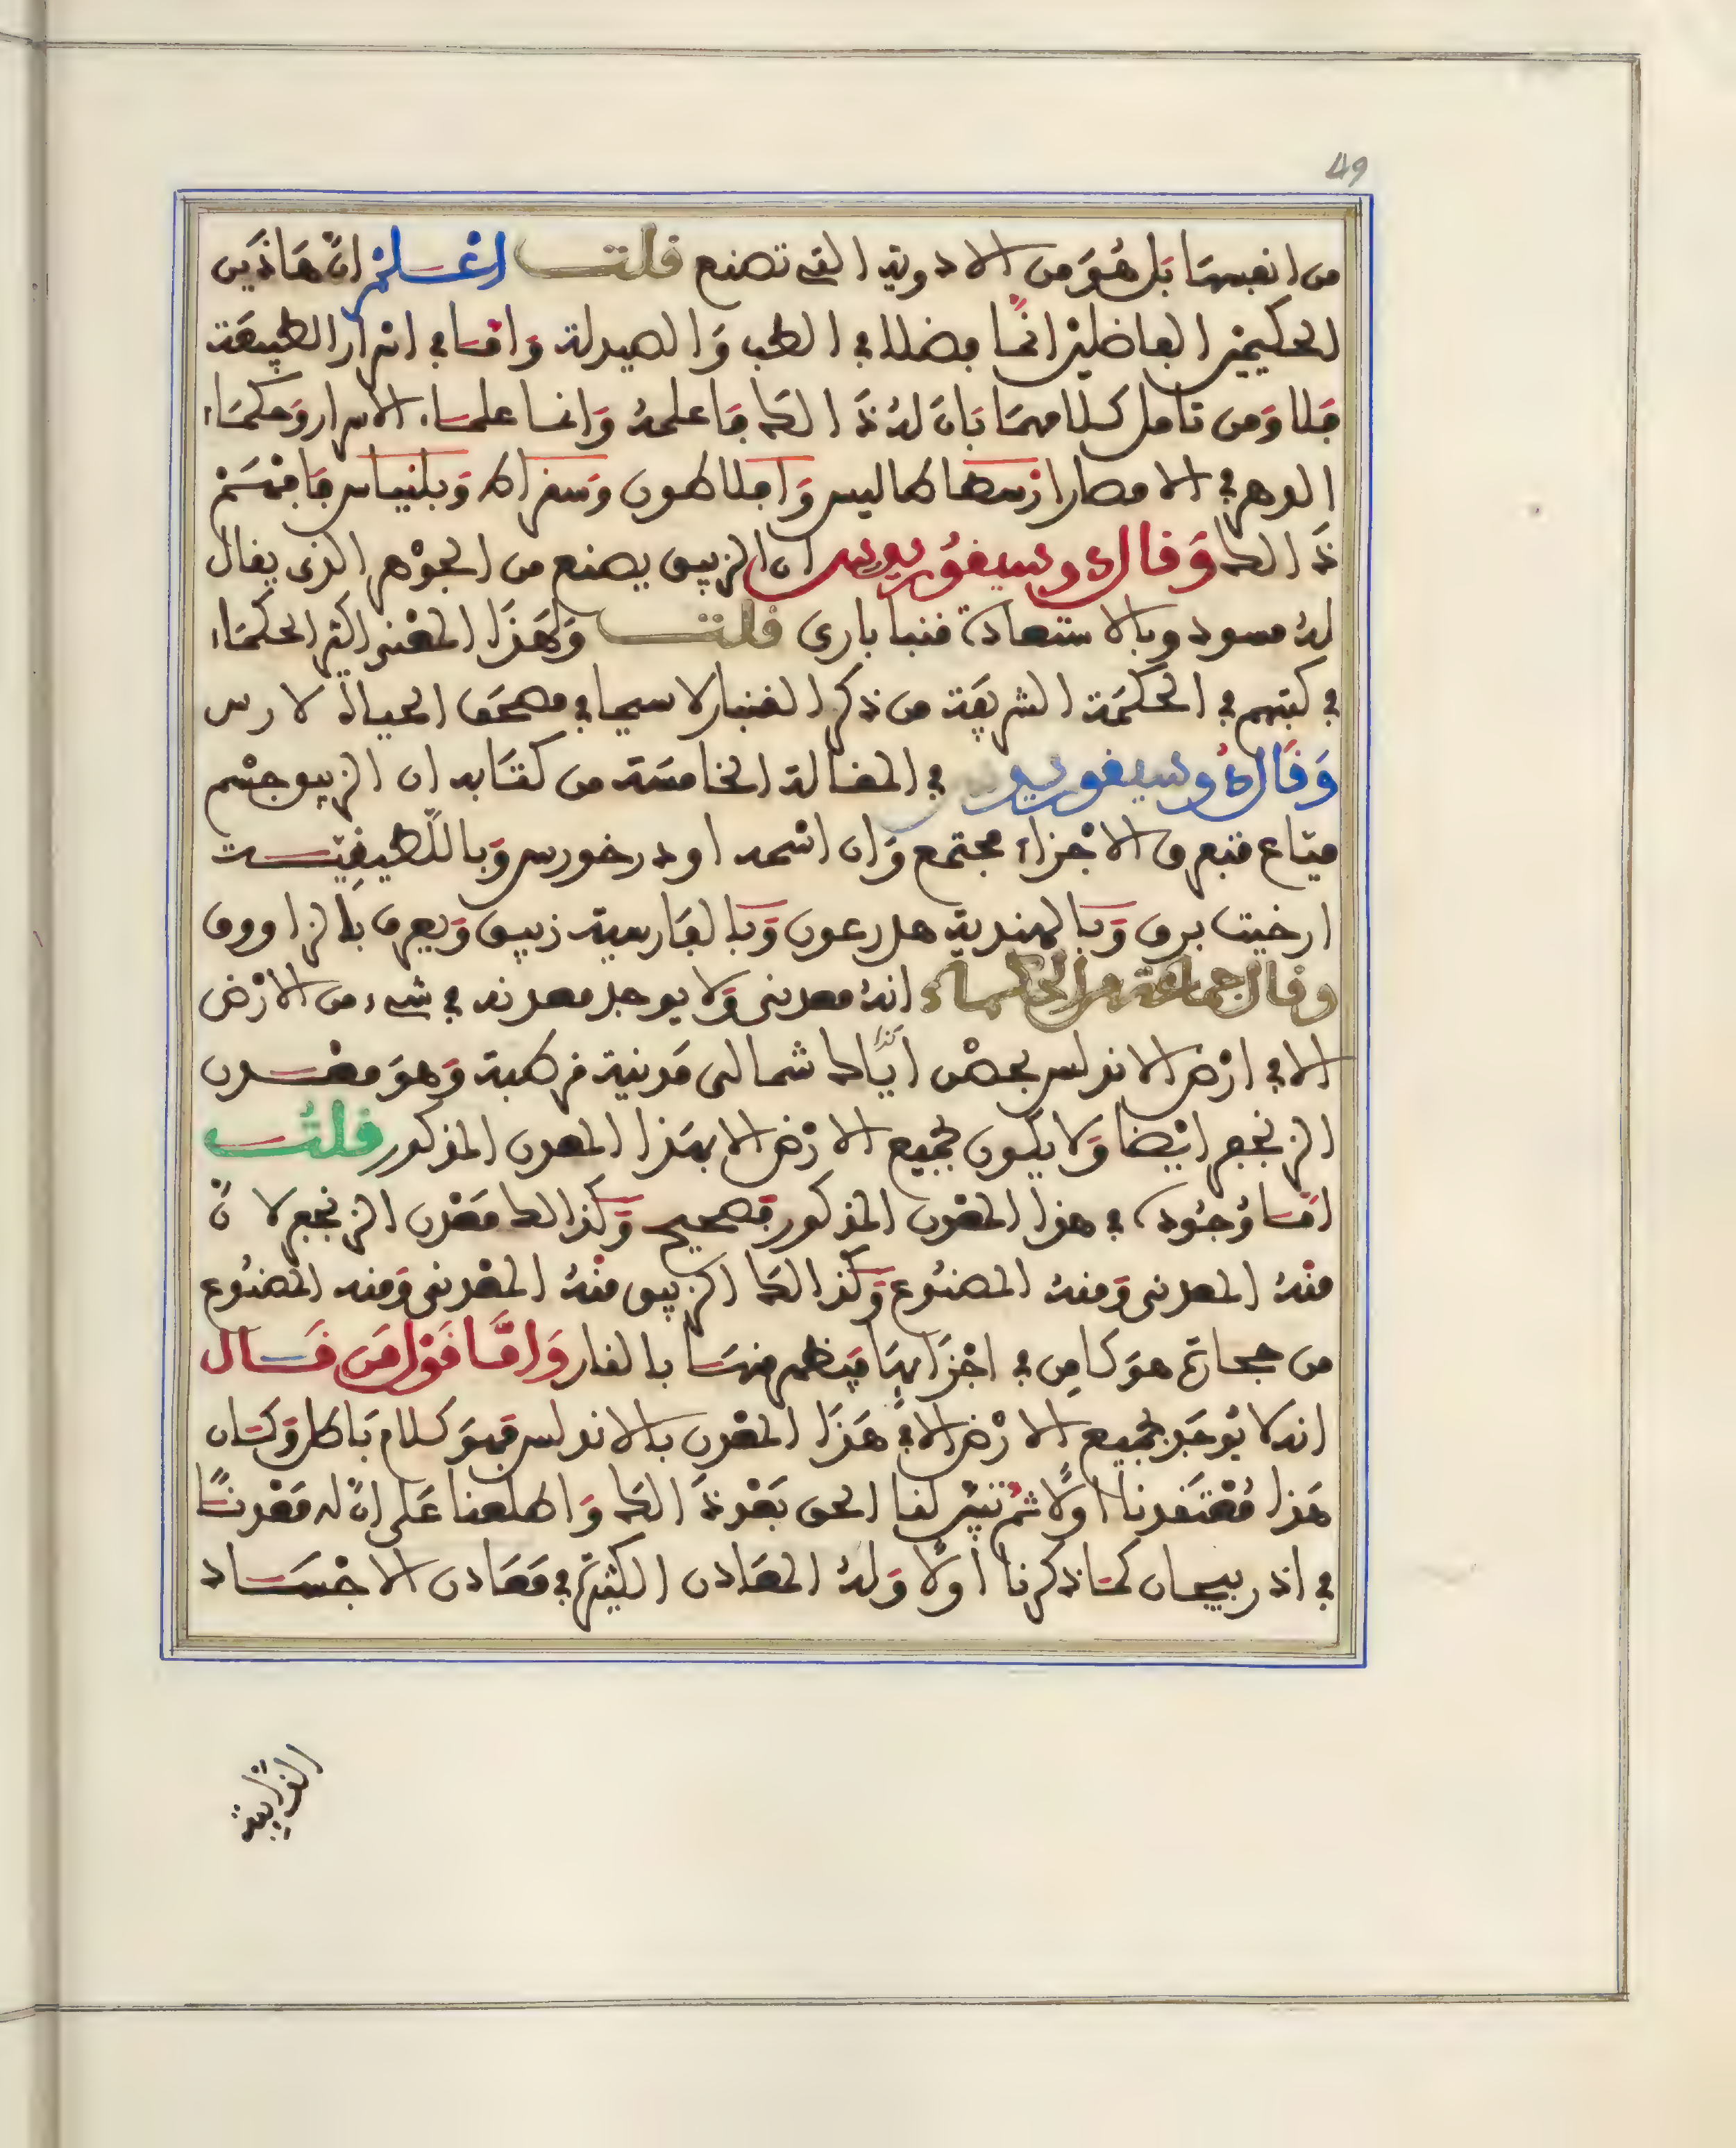 49
من انفسها بَل هُوَ من الادوية التي تصنع قلت اعْلمْ انّ هَاذَين
الحكيمين الفاضلين انمَّا فضلا في الطب وَالصيدلة وَامّا في اسْرار الطبيعَة
فَلا وَمن تامل كلامهمَا بَانَ لهُ ذَالك مَا علمهُ وَانما علمَاء الاسرار وَحكمَاء
الدهر في الامصار ارسطاطاليس وَافلاطون وَسقراط وَبلنياس فَافهَمْ
ذَالك وَقال دِيسيقوُريدس ان الزيبق يصنع من الجوْهر الذي يقال
لهُ مسود وبالاستعادة قنباباري قلت وَهَذا المعْنى اكثر الحكمَاء
في كتبهم في الحكمَة الشريفَة من ذكر القنبار لا سيما في مصحَف الحياة لارس
وَقَال دِيسيقوريدس في المقالة الخامسَة من كتَابه ان الزيبق جسْم
ميّاع متفرق الاجْزاء مجتمع وَان اسْمه اودرخورس وَباللّطيفِيّة
ارخيت برق وَبَالهندية هلرعون وَبَالفَارسية زيبق وَيعرف بالزاووق
وقال جماعة من الحكماء انهُ معدني وَلا يوجد معدنه في شيء من الارْض
الا في ارْض الاندلس بحصْن ايَّاك شمالى مَدينة قرطبة وَهوَ معْدن
الزنجفر ايْضا وَلا يكون لجميع الارْض الا بهَذا المعدن المذكور قلتُ
امّا وُجُوده في هذا المعْدن المذكور فَصحيح وَكذالك معَدن الزنجفر لانّ
منْهُ المعدني وَمنهُ المصْنُوع وَكذالكَ الزيبق منْهُ المعْدني وَمنه المصْنُوع
من حجارة هوَ كامِن في اجْزَايهَا فيَظهر منهَا بالنار وَامَّا قَوْل مَن قَال
انه لا يُوجَد لجميع الارْض الا في هَذَا المعْدن بالاندلس فَهوَ كلام بَاطل وَكَان
هَذا مُعْتقَدنا اولًا ثم تبيّن لنا الحق بَعْد ذَالك وَاطلعنا عَلى انّ له مَعْدنًا
في اذربيجان كمَا ذكرنا اولًا وَلهُ المعَادن الكثيرة في مَعَادن الاجْسَاد
الذايبة